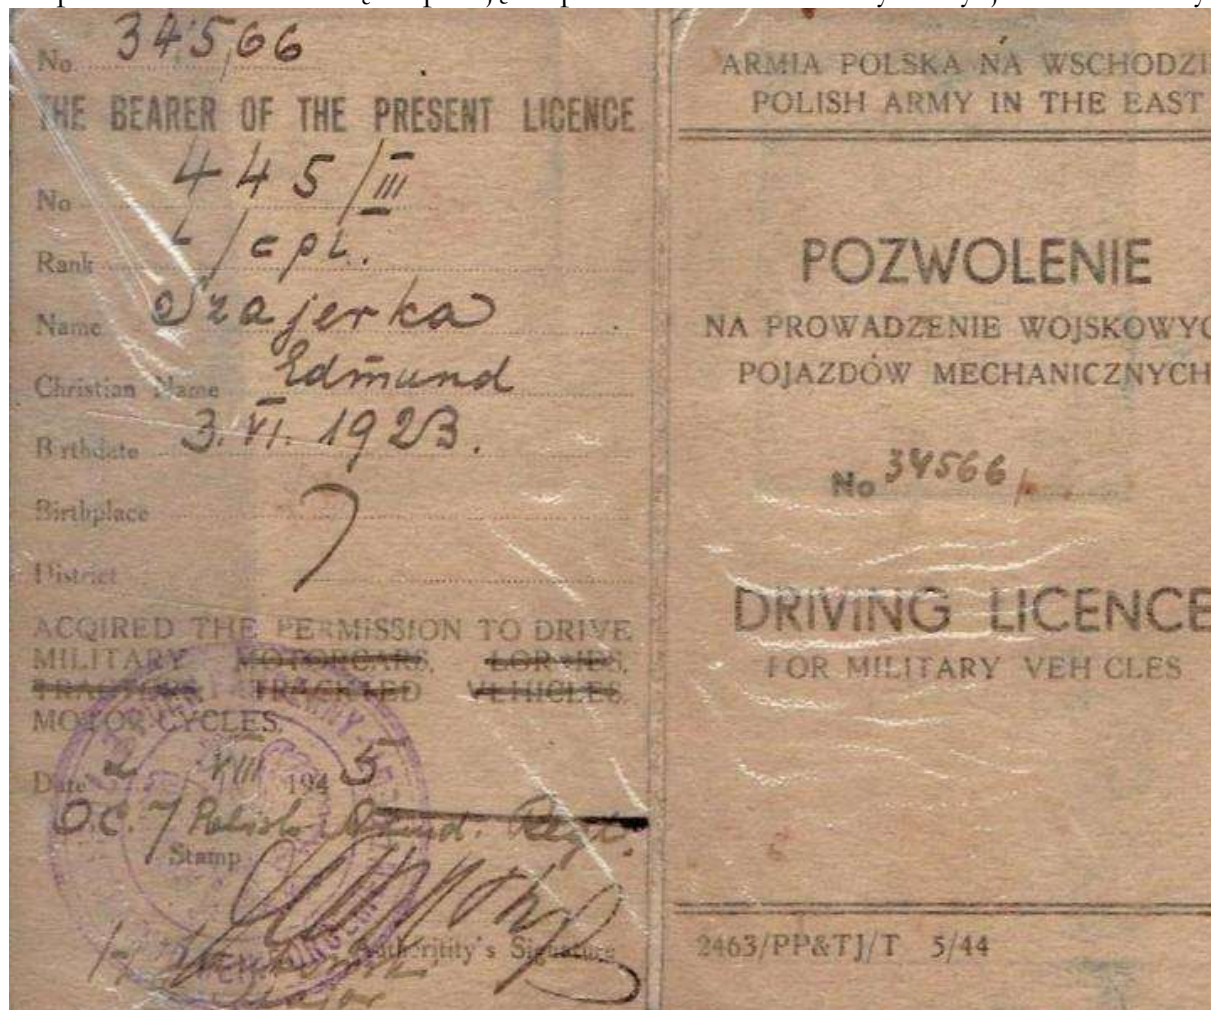 No. 34566
THE BEARER OF THE PRESENT LICENCE
No 445/III
Rank L/cpl.
Name Szajerka
Christian Name Edmund
Birthdate 3.VI.1923.
Birthplace
District
ACQIRED THE PERMISSION TO DRIVE
MILITARY MOTORCARS, LORRIES,
TRACTORS, TRACKLED VEHICLES,
MOTOR CYCLES.
Date 2 VIII 1945
O.C. 7 Polish Regt.
Stamp
Authoritity's Signature
Major
ARMIA POLSKA NA WSCHODZI
POLISH ARMY IN THE EAST
POZWOLENIE
NA PROWADZENIE WOJSKOWYC
POJAZDÓW MECHANICZNYCH
No 34566
DRIVING LICENCE
FOR MILITARY VEHICLES
2463/PP&TJ/T 5/44